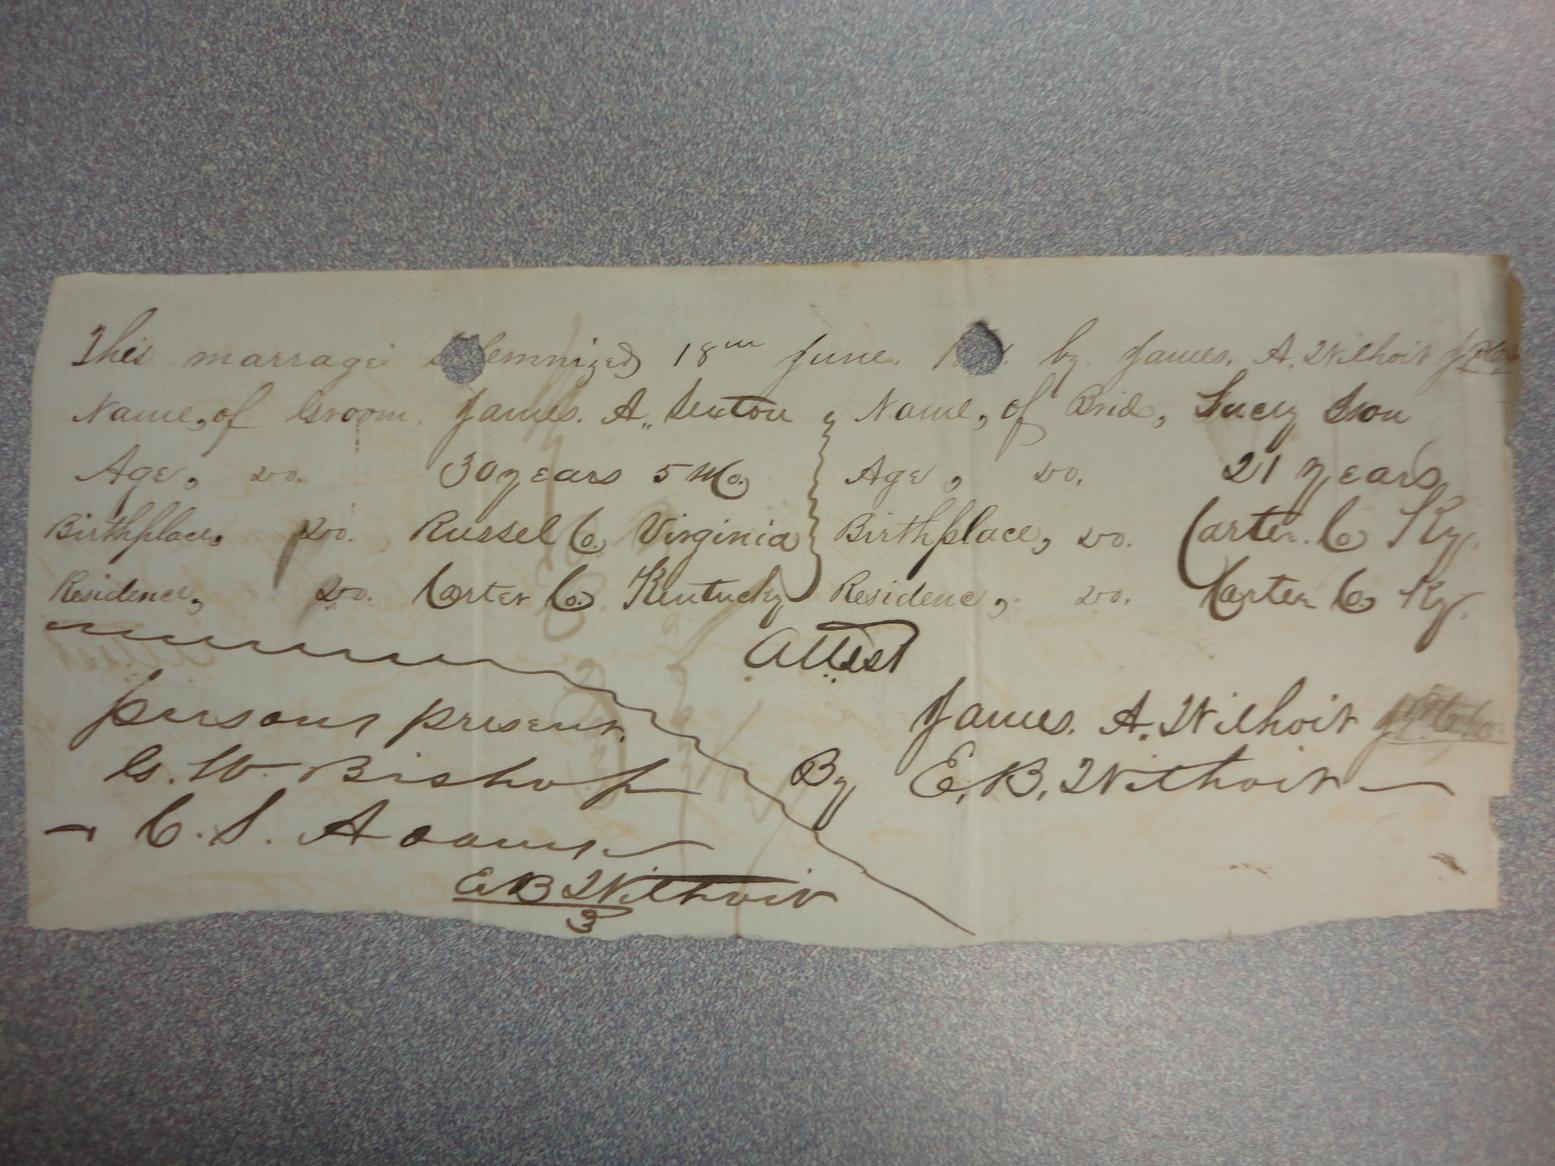 This marrage solemnized 18th June. by James. A. Wilhoit
Name, of Groom. James. A. Sexton, Name, of Brid, Lucy Ison
Age, do. 30 years 5 Mo, Age, do, 21 years
Birthplace, do. Russel Co. Virginia Birthplace, do. Carter. Co Ky.
Residence, do. Carter Co. Kentucky Residence, do. Carter Co Ky.
Attest
persons present. James. A. Wilhoit
G. W. Bishop By E. B. Wilhoit
C. S. Adams
E B Wilhoit
3